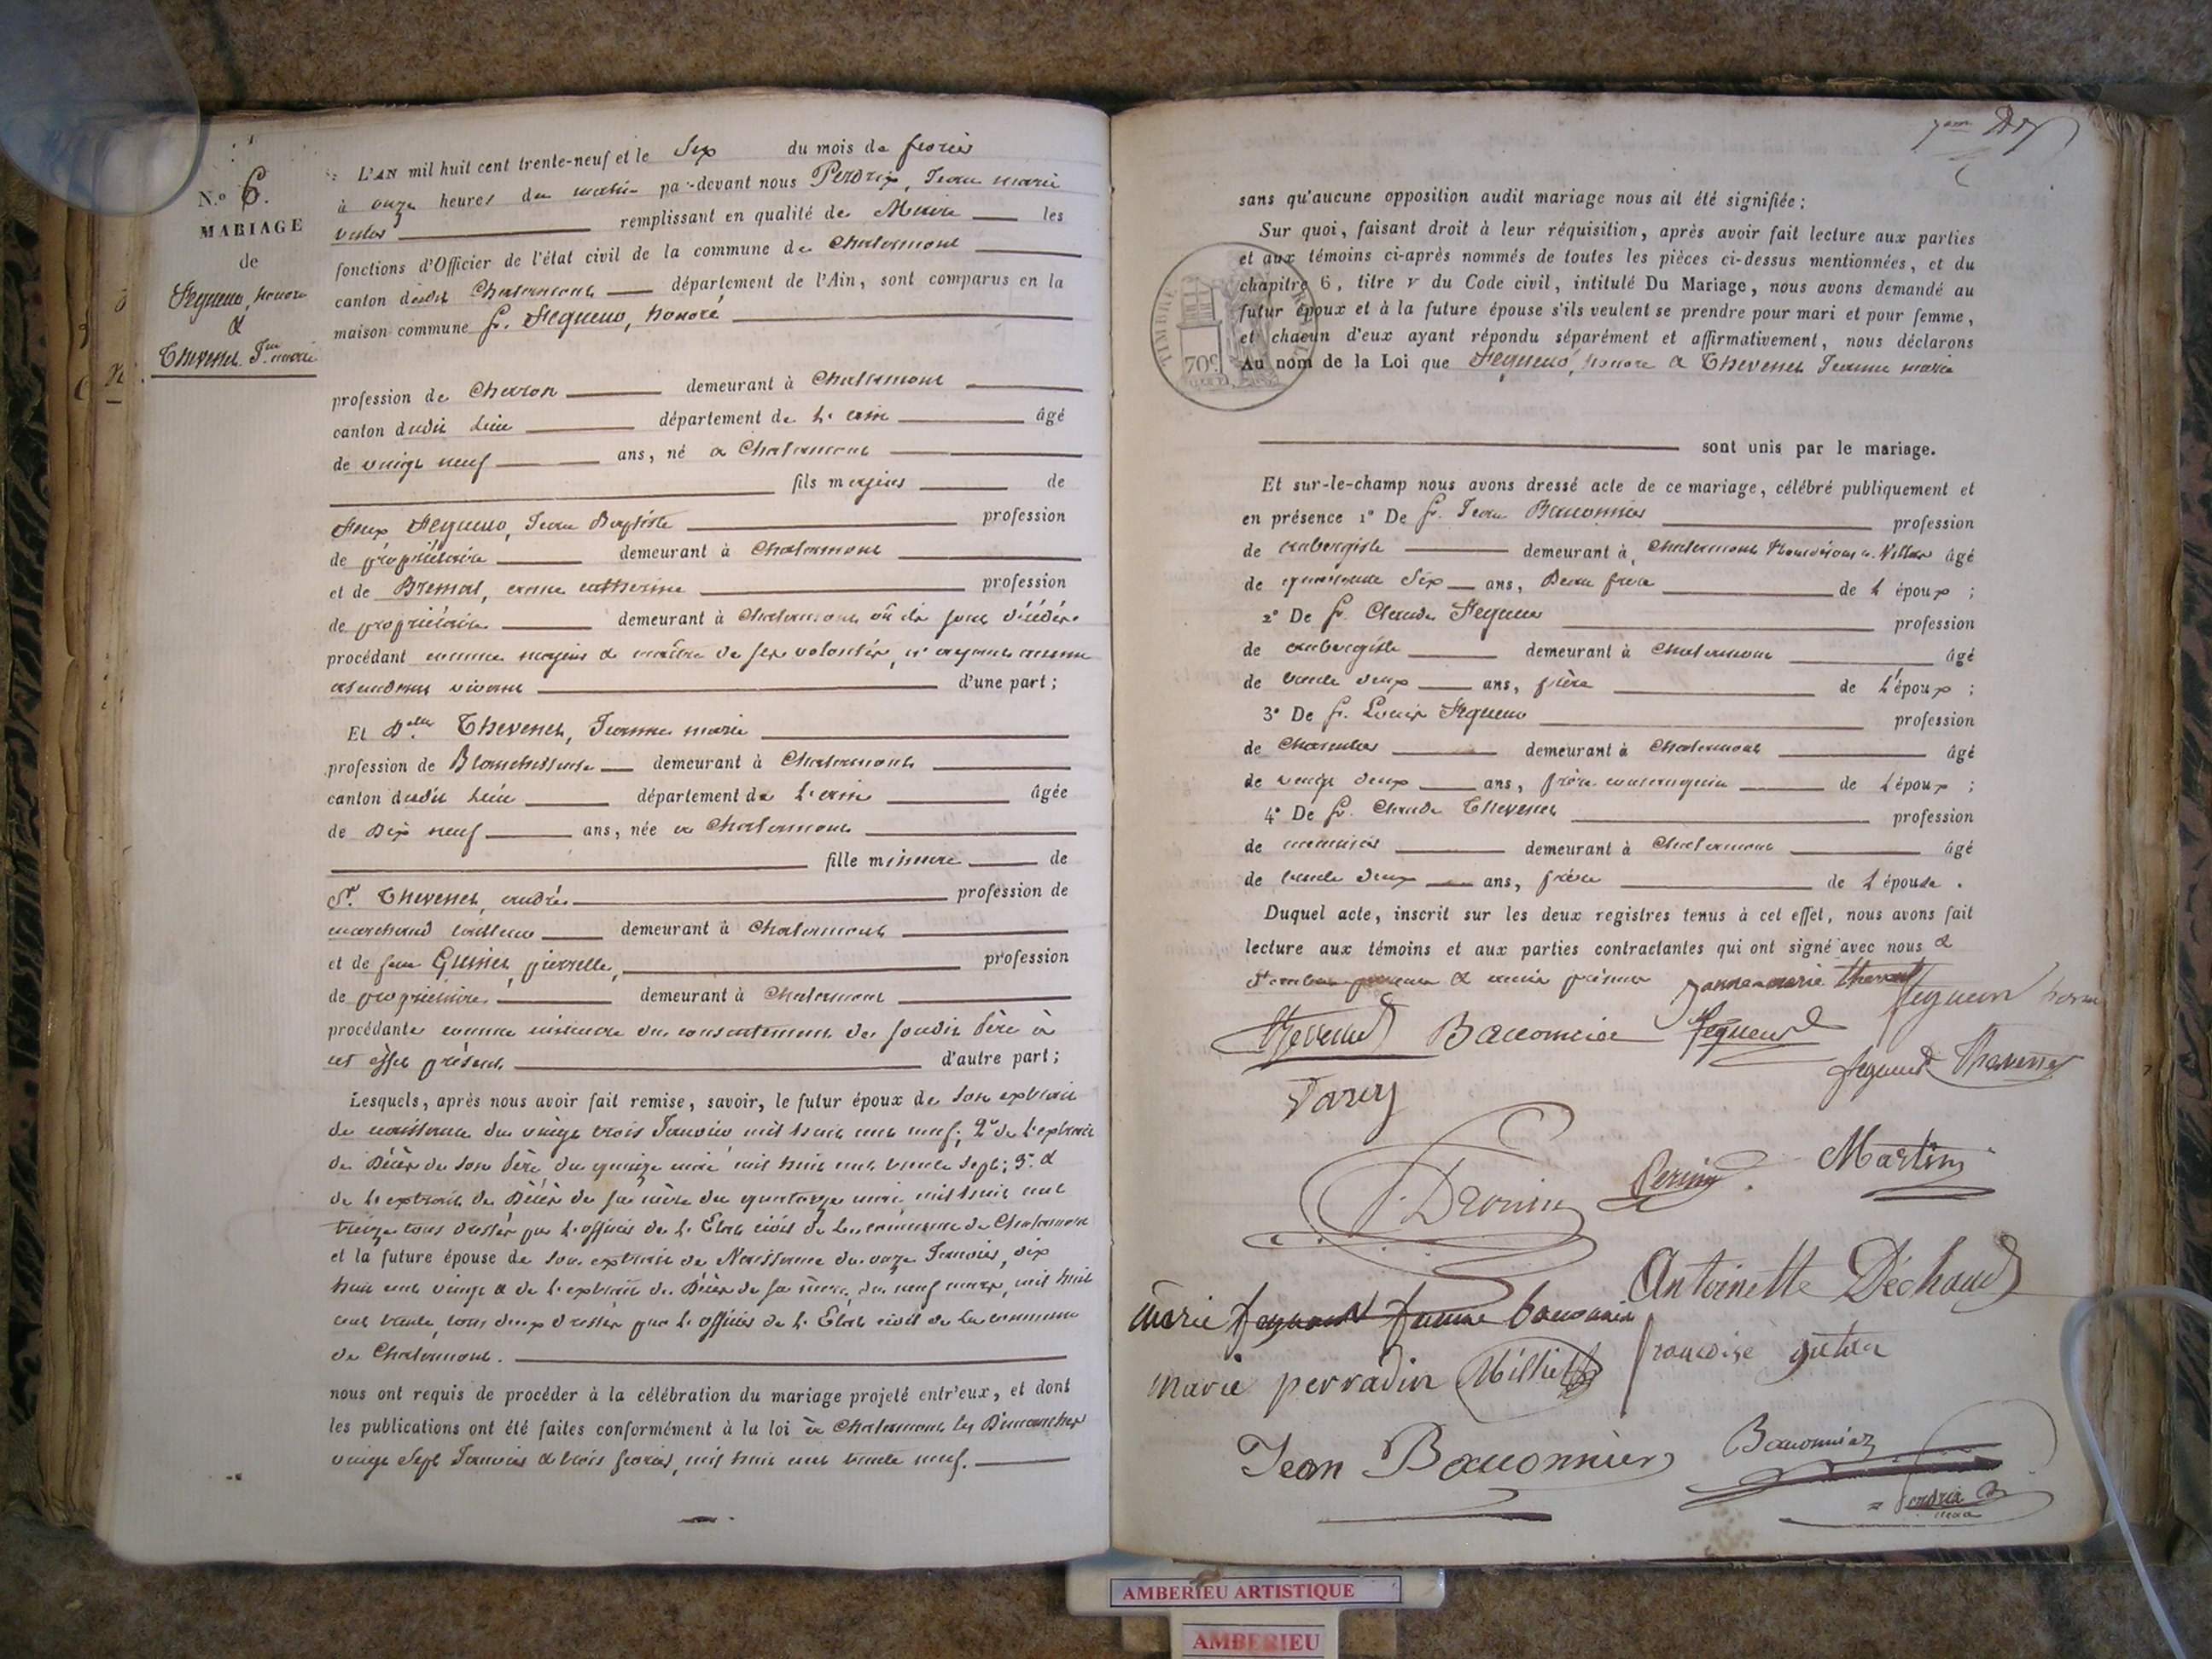 N.º 6.
MARIAGE
de
Fegueux, honoré
&
Thevenet Jne marie
L'AN mil huit cent trente-neuf et le Six du mois de fevrier
à onze heures du matin par-devant nous Perdrix, Jean marie
remplissant en qualité de Maire les
fonctions d'Officier de l'état civil de la commune de Chalamont
canton dudit Chalamont département de l'Ain, sont comparus en la
maison commune honoré
profession de Charon demeurant à Chalamont
canton dudit Lieu département de L'ain âgé
de vingt neuf ans, né à Chalamont
fils majeur de
Jean Baptiste profession
de propriétaire demeurant à Chalamont
et de anne catherine profession
de propriétaire demeurant à Chalamont où ils sont décédés
procédant comme majeur & maître de ses volontés, n'ayant aucun
ascendant vivant d'une part;
Et Dlle Thevenet, Jeanne marie
profession de Blanchisseuse demeurant à Chalamont
canton dudit Lieu département de L'ain âgée
de Dix neuf ans, née à Chalamont
fille mineure de
Sr. Thevenet, andré profession de
marchand demeurant à Chalamont
et de pierrette, profession
de propriétaire demeurant à Chalamont
procédante comme mineure du consentement de sondit Père à
cet effet présent d'autre part;
Lesquels, après nous avoir fait remise, savoir, le futur époux de son extrait
de naissance du vingt trois Janvier mil huit cent neuf; 2º de l'extrait
de Décès de son Père du quinze mai mil huit cent trente sept; 3º &
de l'extrait de Décès de sa mère du quatorze mai mil huit cent
treize tous dressés par L'officier de L'Etat civil de la commune de Chalamont
et la future épouse de son extrait de Naissance du onze Janvier, dix
huit cent vingt & de l'extrait de Décès de sa mère, du neuf mars, mil huit
cent trente, tous deux dressés par L'officier de L'Etat civil de la commune
de Chalamont.
nous ont requis de procéder à la célébration du mariage projeté entr'eux, et dont
les publications ont été faites conformément à la loi à Chalamont les Dimanches
vingt Sept Janvier & trois fevrier, mil huit cent trente neuf.
sans qu'aucune opposition audit mariage nous ait été signifiée;
Sur quoi, faisant droit à leur réquisition, après avoir fait lecture aux parties
et aux témoins ci-après nommés de toutes les pièces ci-dessus mentionnées, et du
chapitre 6, titre V du Code civil, intitulé Du Mariage, nous avons demandé au
futur époux et à la future épouse s'ils veulent se prendre pour mari et pour femme,
et chacun d'eux ayant répondu séparément et affirmativement, nous déclarons
Au nom de la Loi que honoré & Thevenet Jeanne marie
TIMBRE
70c
sont unis par le mariage.
Et sur-le-champ nous avons dressé acte de ce mariage, célébré publiquement et
en présence 1º De Sr. Jean Bauonnier profession
de aubergiste demeurant à Chalamont âgé
de quarante Six ans, Beau frère de L'époux ;
2º De Sr. Claude profession
de aubergiste demeurant à Chalamont âgé
de trente deux ans, frère de L'époux ;
3º De Sr. Louis profession
de Charcutier demeurant à Chalamont âgé
de vingt deux ans, frère consanguin de L'époux ;
4º De Sr. Claude Thevenet profession
de menuisier demeurant à Chalamont âgé
de trente deux ans, frère de L'épouse .
Duquel acte, inscrit sur les deux registres tenus à cet effet, nous avons fait
lecture aux témoins et aux parties contractantes qui ont signé avec nous &
& amis présents
Janne marie thevenet
Thevenet Bauonnier
Thevenet
Darcy
Drouin Perin Martin
Antoinette Déchaud
marie femme bauonnier
marie perradin Milliet françoise
Jean Bauonnier Bauonnier
Perdrix
AMBERIEU ARTISTIQUE
AMBERIEU